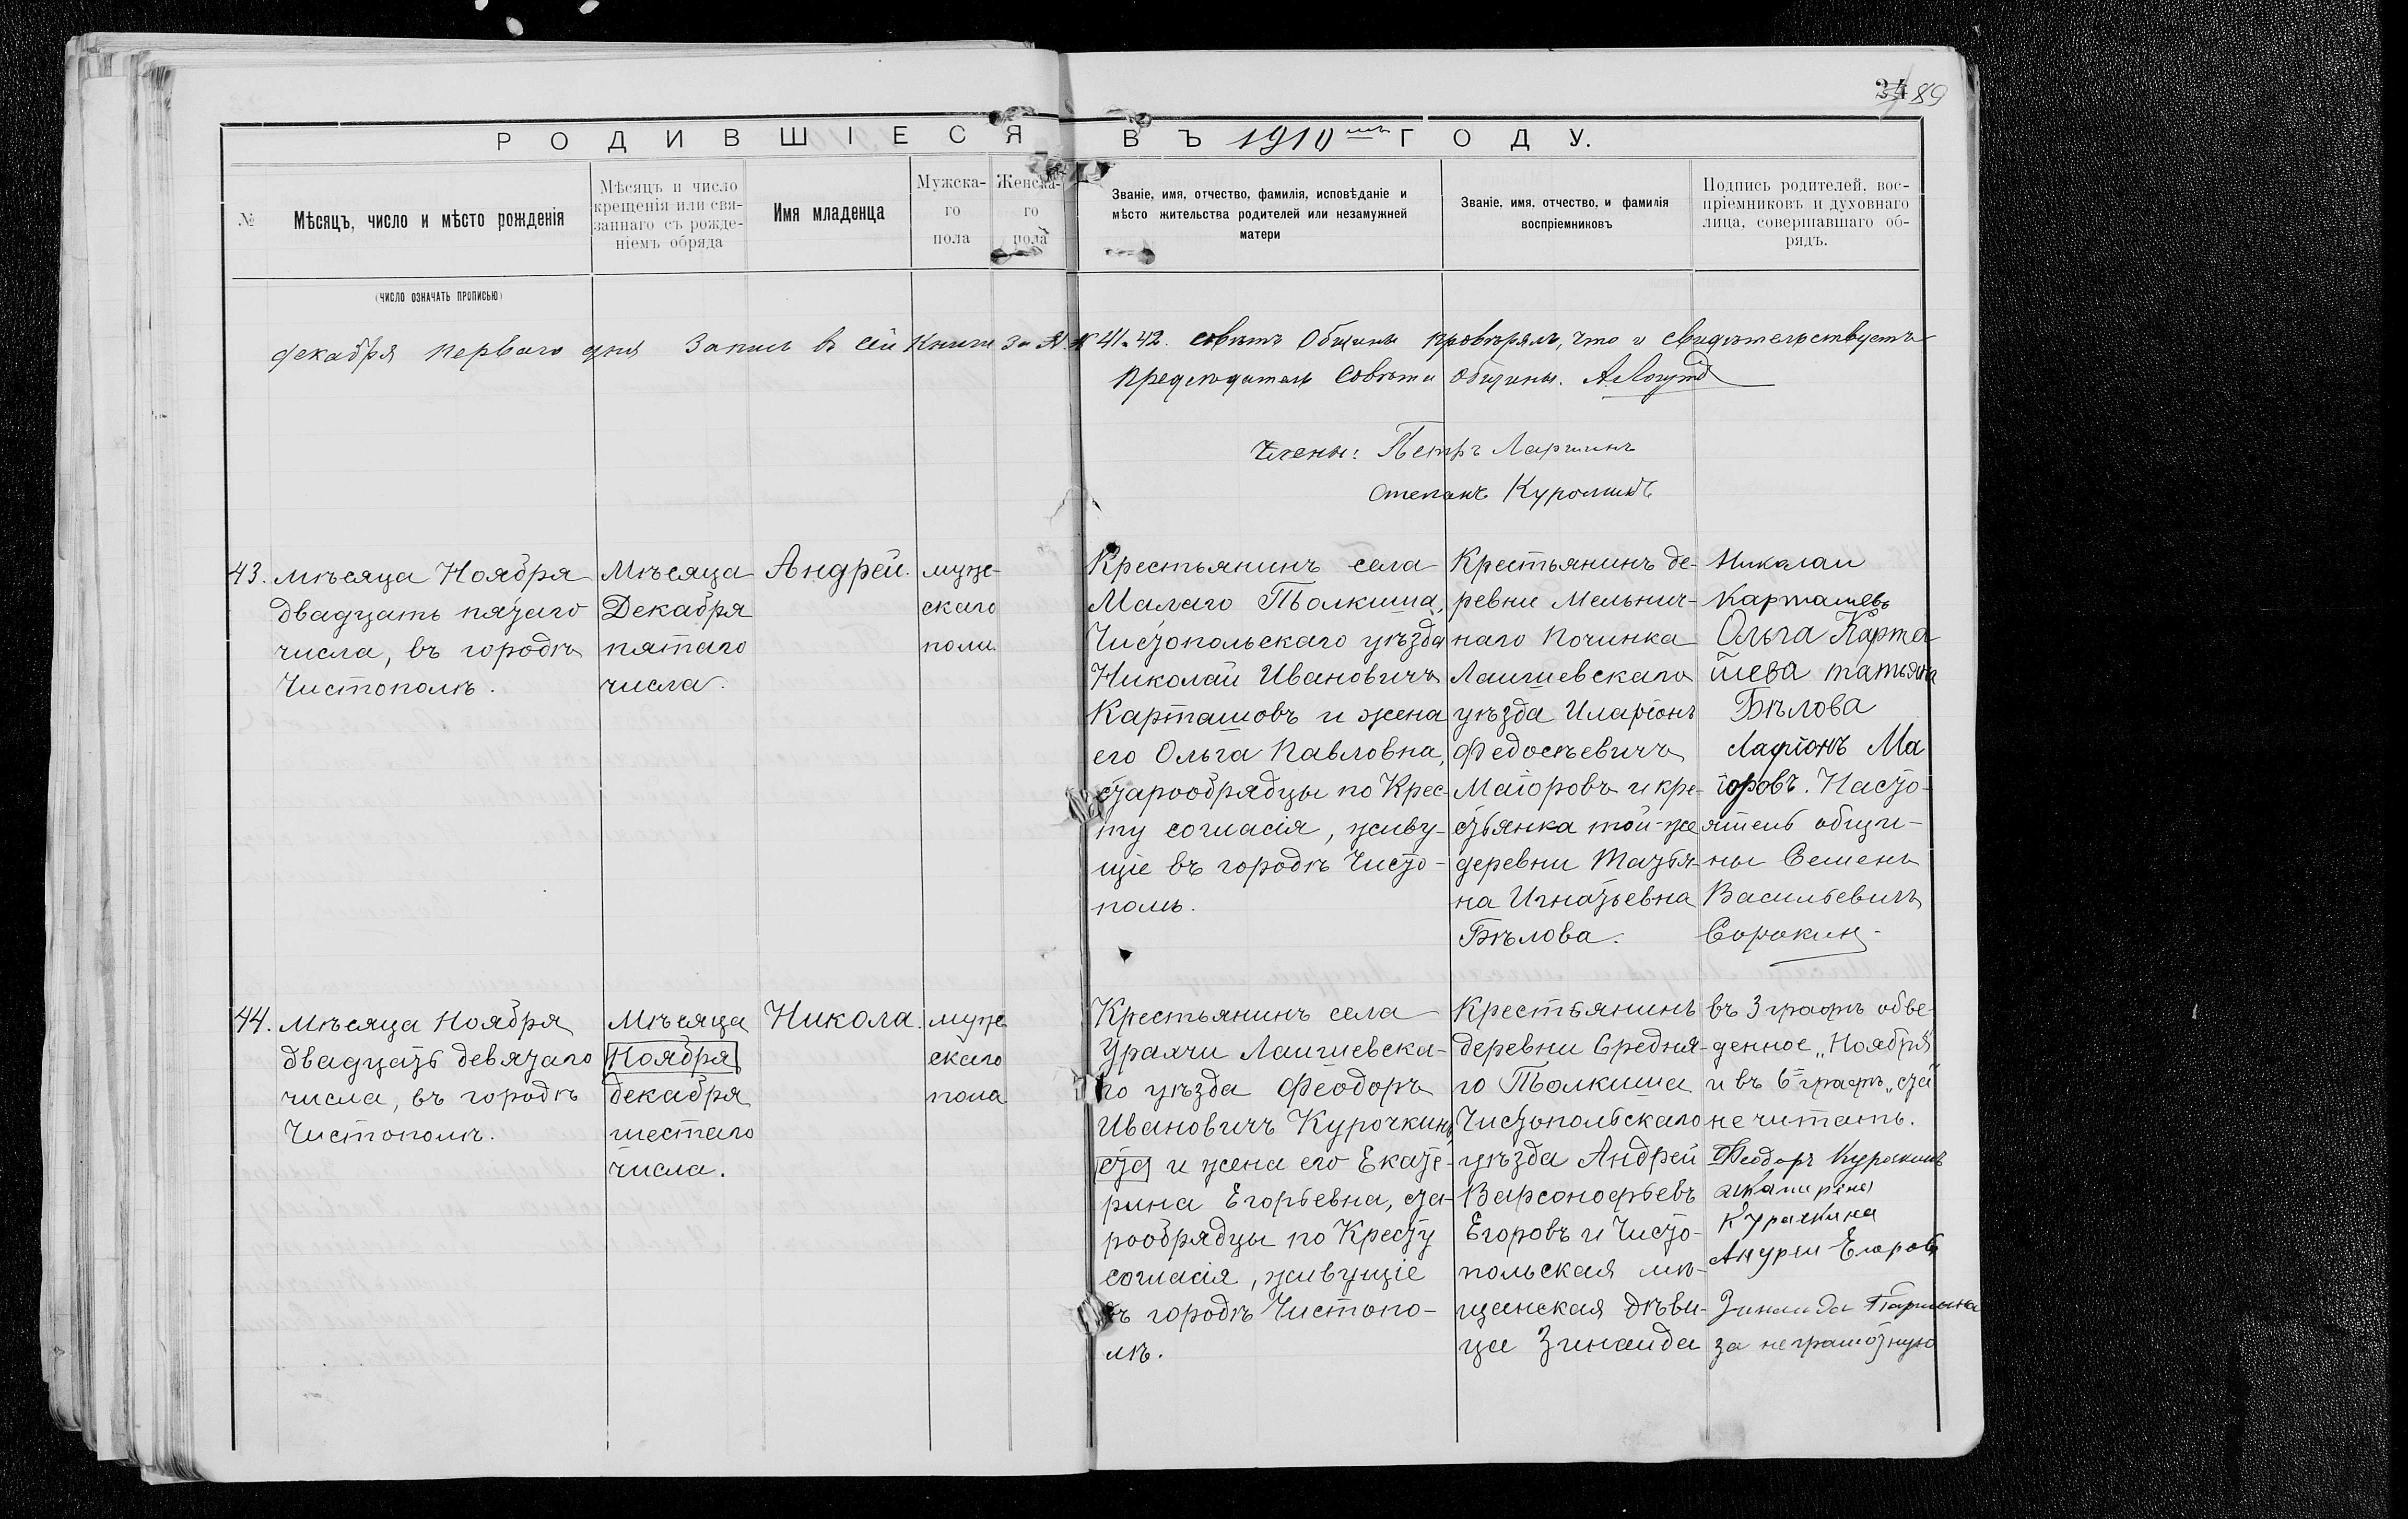 34 89
РОДИВШІЕСЯ ВЪ 1910мъ ГОДУ.
№
Мѣсяцъ, число и мѣсто рожденія
Мѣсяцъ и число
крещенія или свя-
заннаго съ рожде-
ніемъ обряда
Имя младенца
Мужска-
го
пола
Женска-
го
пола
Званіе, имя, отчество, фамилія, исповѣданіе и
мѣсто жительства родителей или незамужней
матери
Званіе, имя, отчество, и фамилія
воспріемниковъ
Подпись родителей, вос-
пріемниковъ и духовнаго
лица, совершавшаго об-
рядъ.
(число означать прописью)
Декабря перваго дня Запись в сей книги за № № 41 и 42. совѣтъ Общины провѣрялъ, что и свидѣтельствуетъ
Предсѣдатель Совѣта общины.
Члены: Петръ Ларшинъ
Степанъ
43.
Мѣсяца Ноября
двадцать пятаго
числа, въ городѣ
Чистополѣ.
Мѣсяца
Декабря
пятаго
числа.
Андрей.
муже-
скаго
пола.
Крестьянинъ села
Малаго Толкиша,
Чистопольскаго уѣзда
Николай Ивановичъ
Карташовъ и жена
его Ольга Павловна,
старообрядцы по Крес-
ту согласія, живу-
щіе въ городѣ Чисто-
поль.
Крестьянинъ де-
ревни Мельнич-
наго Починка
Лаишевскаго
уѣзда Иларіонъ
Федосѣевичъ
Маіоровъ и кре-
стьянка той-же
деревни Татья-
на Игнатьевна
Бѣлова.
Николаи
Карташевъ
Ольга Карта
шева татьяна
Бѣлова
Ларіонъ Ма
іоровъ. Насто-
ятель общи-
ны Семенъ
Васильевичъ
Сорокин
44.
Мѣсяца Ноября
двадцать девятаго
числа, въ городѣ
Чистополѣ.
Мѣсяца
Ноября
декабря
шестаго
числа.
Никола.
муже-
скаго
пола
Крестьянинъ села
Урахчи Лаишевска-
го уѣзда Феодоръ
Ивановичъ Курочкинъ,
ста и жена его Екате-
рина Егорьевна, ста-
рообрядцы по Кресту
согласія, живущіе
въ городѣ Чистопо-
лѣ.
Крестьянинъ
деревни Средня-
го Толкиша
Чистопольскаго
уѣзда Андрей
Варсонофьевъ
Егоровъ и Чисто-
польская мѣ-
щанская дѣви-
ца Зинаида
въ 3 графѣ обве-
денное „Ноября"
и въ 6й графѣ „ста"
не читать.
Феодоръ Курочкинъ
Курачкина
Андреи Егоровъ
Зинаида
за неграмотную